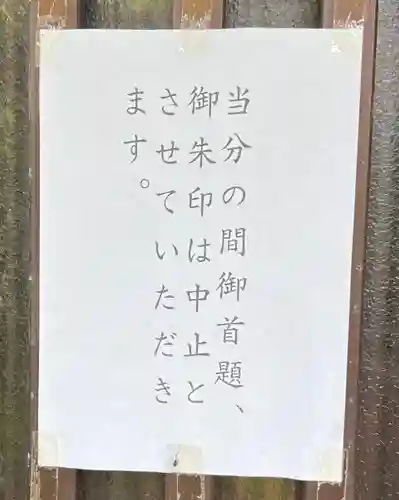 当分の間御首題、
御朱印は中止と
させていただき
ます。